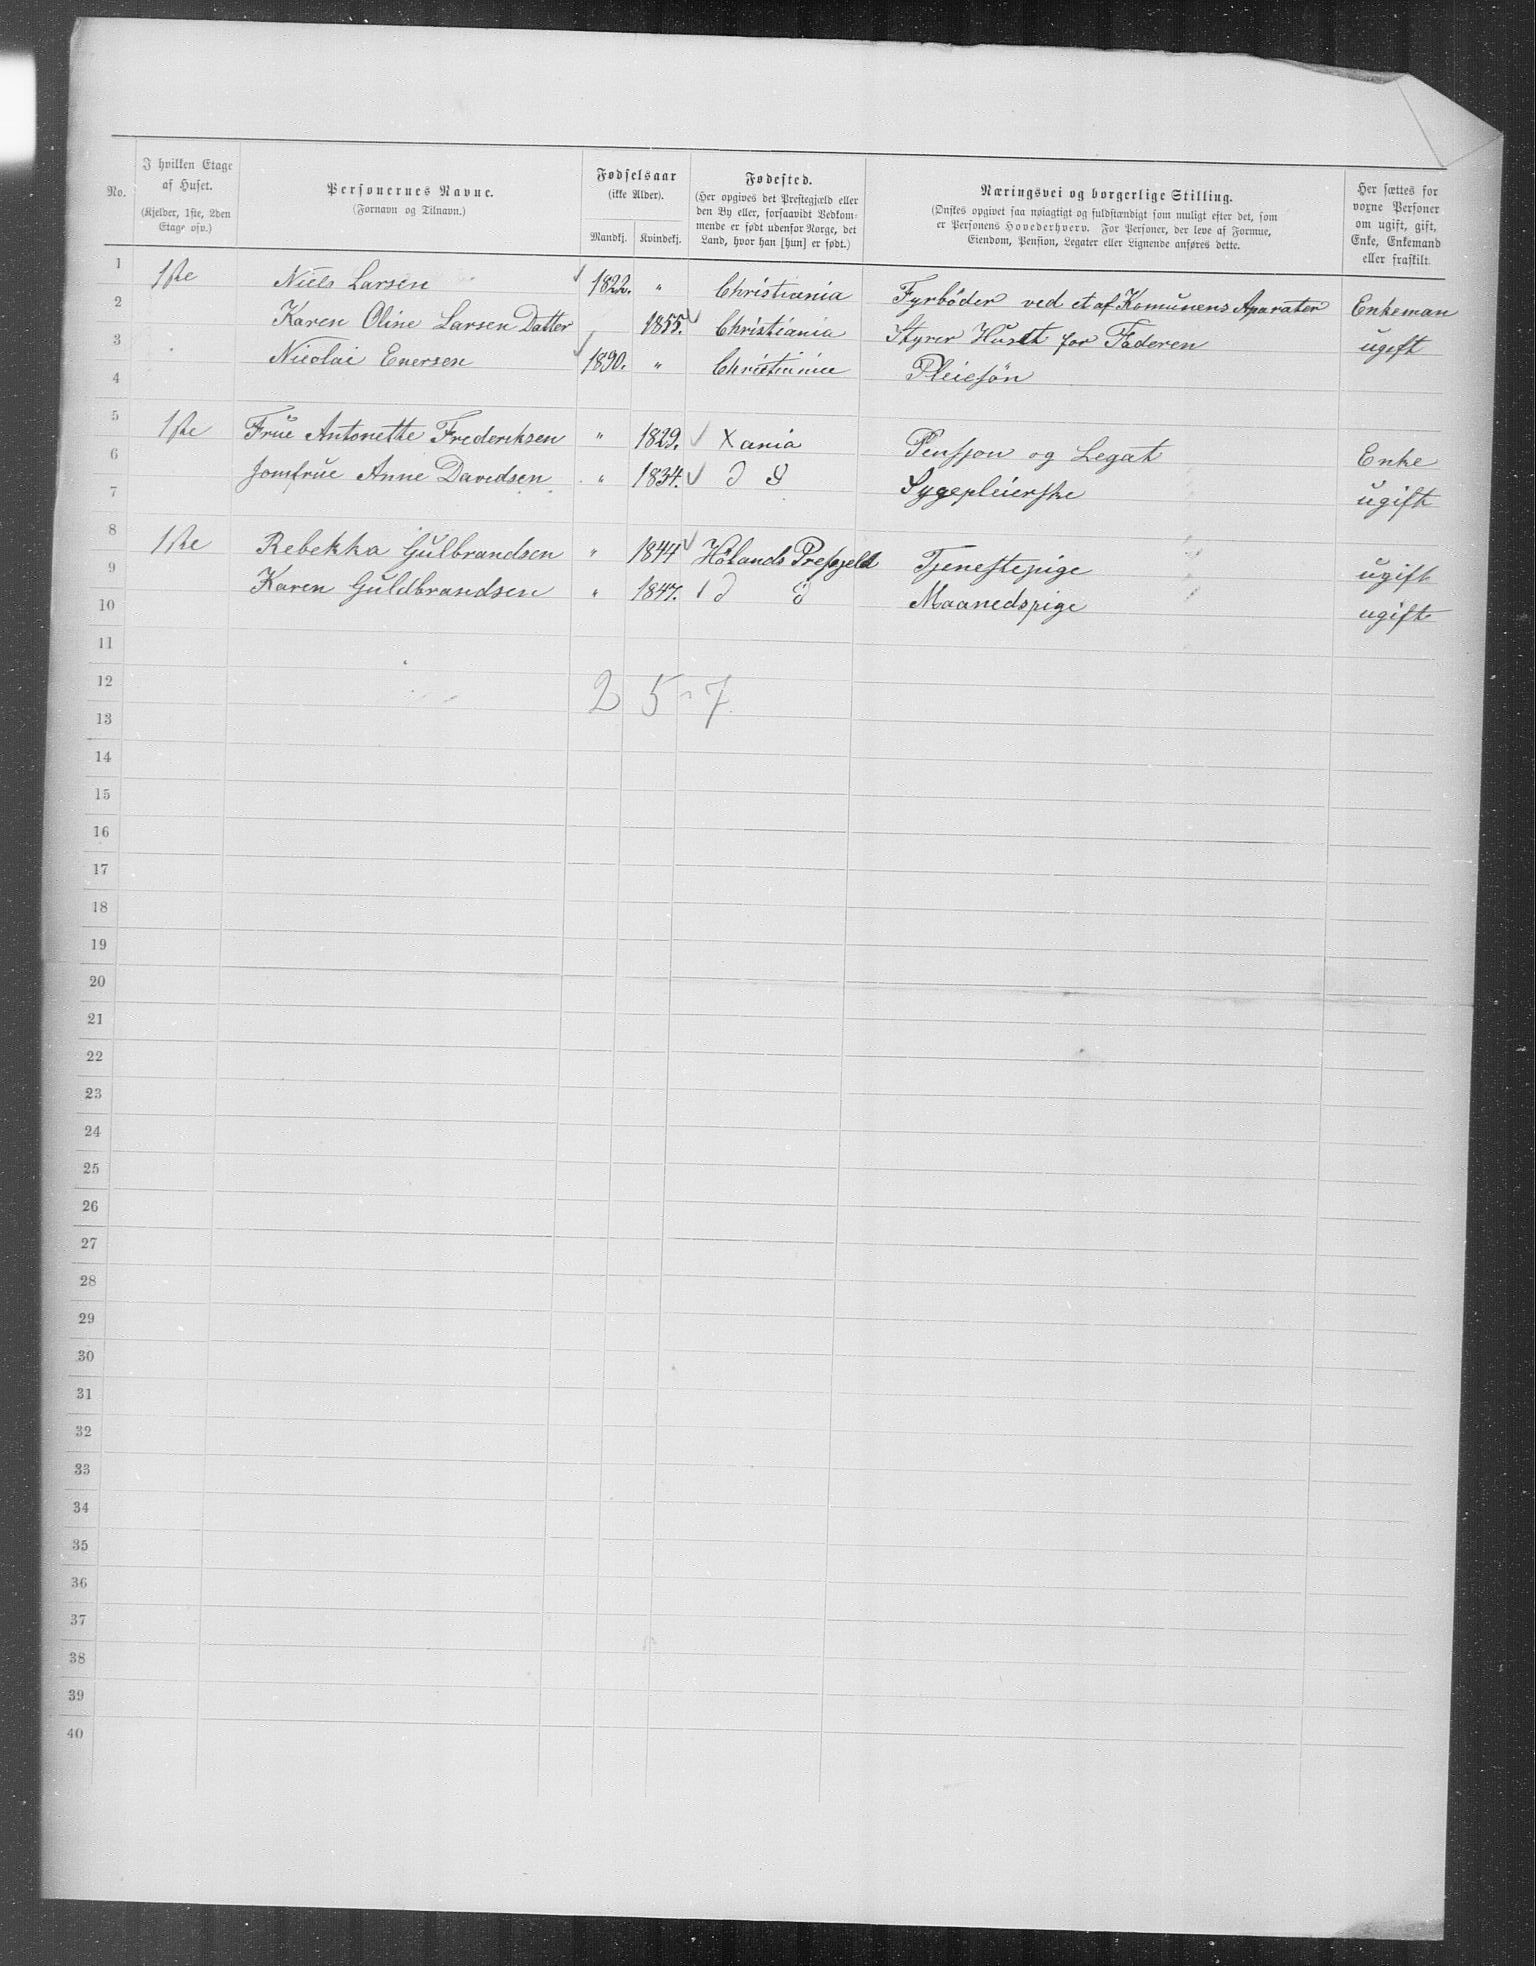 No. | I hvilken Etage af Huset. (Kjelder, 1ste, 2den Etage osv.) | Personernes Navne. (Fornavn og Tilnavn.) | Fødselsaar (ikke Alder). Mandkj. | Kvindekj. | Fødested. (Her opgives det Prestegjæld eller den By eller, forsaavidt Vedkommende er født udenfor Norge, det Land, hvor han [hun] er født.) | Næringsvei og borgerlige Stilling. (Ønskes opgivet saa nøiagtigt og fuldstændigt som muligt efter det, som er Personens Hovederhverv. For Personer, der leve af Formue, Eiendom, Pension, Legater eller Lignende anføres dette. | Her sættes for voxne Personer om ugift, gift, Enke, Enkemand eller fraskilt.
1 | 1ste | Niels Larsen | 1822. | " | Christiania | Fyrböder ved et af Komunens Aparater | Enkeman
2 | Karen Oline Larsen Datter | 1855. | Christiania | Styrer Huset for Faderen | ugift
3 | Nicolai Enersen | 1890. | " | Christiania | Pleiesön
4
5 | 1ste | Frue Antonette Frederiksen | " | 1829. | Xania | Pensjon og Legat | Enke
6 | Jomfrue Anne Davidsen | " | 1834. | D D | Sygepleierske | ugift
7
8 | 1ste | Rebekka Gulbrandsen | " | 1844 | Hölands Presgjeld | Tjenestepige | ugift
9 | Karen Guldbrandsen | " | 1847. | D D | Maanedspige | ugift
10
11
12 | 2 5 - 7
13
14
15
16
17
18
19
20
21
22
23
24
25
26
27
28
29
30
31
32
33
34
35
36
37
38
39
40